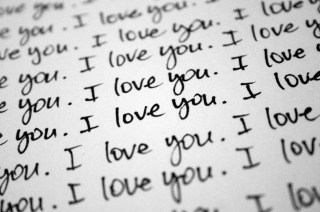 you. I love you.
love you. I love you. I
you. I love you. I love
you. I love you. I love you
you. I love you. I love
you. I love you. I love
you. I love you. I love
you. I love you. I lov
I love you. I lo
I